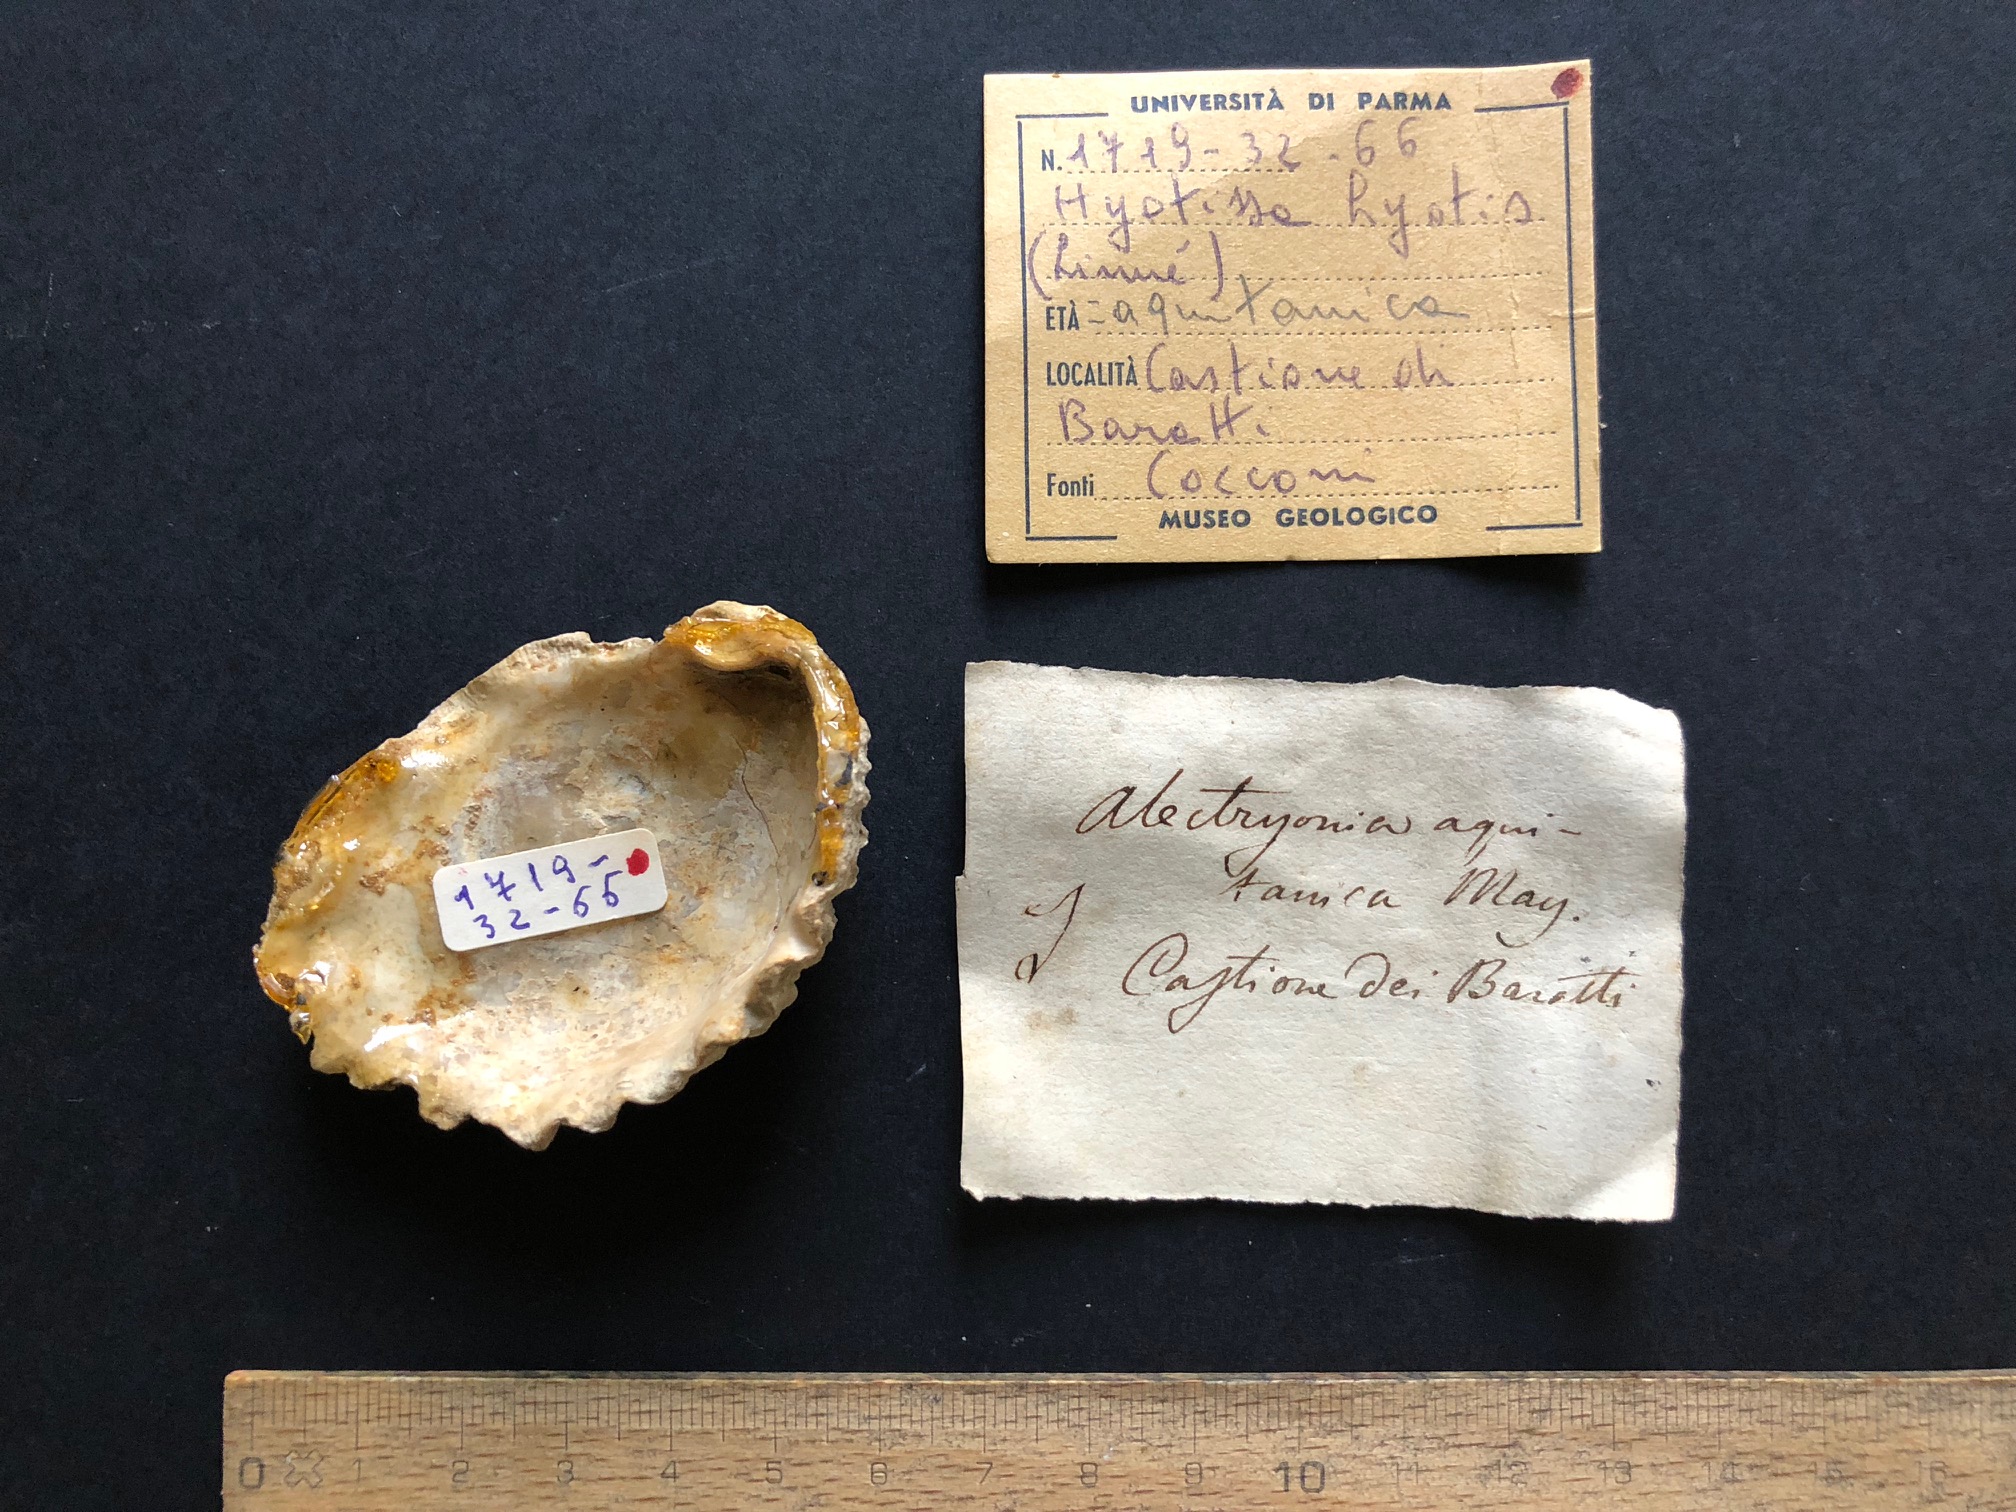 UNIVERSITÀ DI PARMA
N. 1719-32-66
Hyotissa hyotis
(Linné)
ETÀ = aquitanica
LOCALITÀ Castione di
Baratti
Fonti Cocconi
MUSEO GEOLOGICO
1719-
32-66
Alectryonia aqui-
tanica May.
Castione dei Baratti
0 1 2 3 4 5 6 7 8 9 10 11 12 13 14 15 16